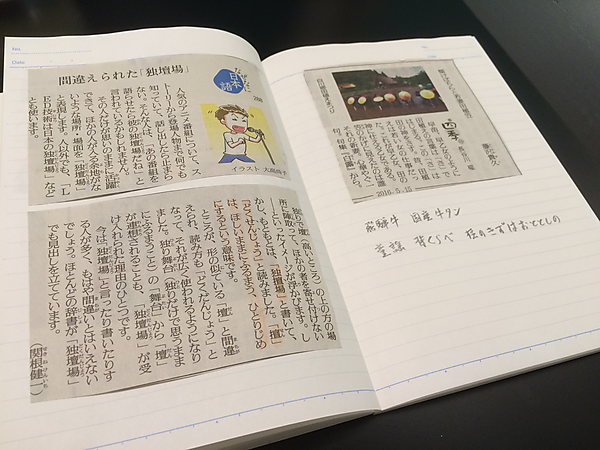 間違えられた「独壇場」
なぜなに
日本語
288
人気のアニメ番組について、ス
トーリーから登場人物まで何でも
知っていて、話し出したら止まら
ない。そんな人は、「あの番組を
語らせたら彼の独壇場だね」と
言われているかもしれません。
その人だけが思いのままに活躍
できて、ほかの人が入る余地がな
いような場所・場面を「独壇場」
と表現します。人以外でも、「L
ED技術は日本の独壇場」など
とも使います。
イラスト 大高尚子
独りで壇（高いところ）の上の方の場
所に陣取って、ほかの者を寄せ付けない
――といったイメージが浮かびます。し
かし、もともとは、「独擅場」と書いて、
「どくせんじょう」と読みました。「擅」
は、ほしいままにふるまう、ひとりじめ
にするという意味です。
ところが、形の似ている「壇」と間違
えられ、読み方も「どくだんじょう」と
なって、それが広く使われるようになり
ました。独り舞台（独りだけで思うまま
にふるまうこと）の「舞台」から「壇」
が連想されることも、「独壇場」が受
け入れられた理由のひとつです。
今は「独壇場」と言ったり書いたりす
る人が多く、もはや間違いとはいえない
でしょう。ほとんどの辞書が「独壇場」
でも見出しを立てています。
（関根健一）
四季
2016.5.15
飛騨牛 国産牛タン
童謡 背くらべ 柱のきずはおととしの